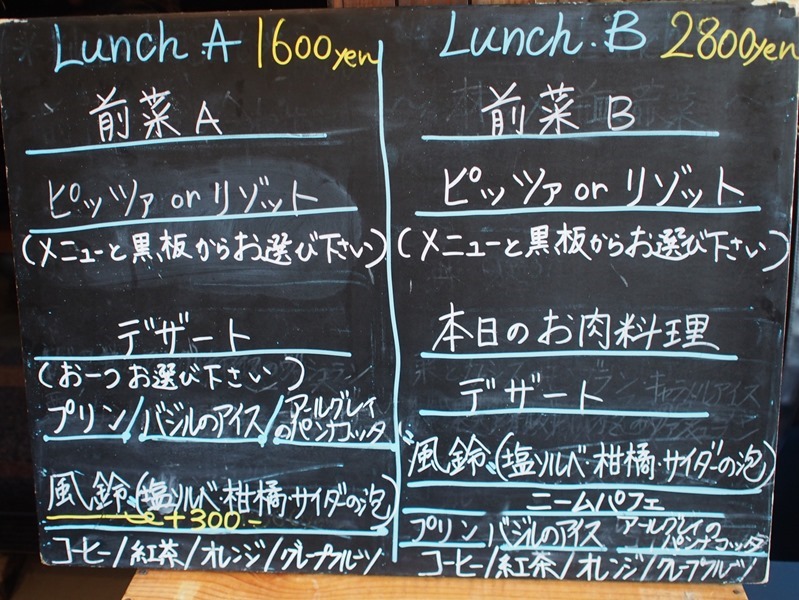 Lunch.A 1600yen
前菜 A
ピッツァ or リゾット
(メニューと黒板からお選び下さい)
デザート
(お一つお選び下さい)
プリン/バジルのアイス/アールグレイのパンナコッタ
風鈴(塩ソルベ・柑橘・サイダーの泡)
+300-
コーヒー/紅茶/オレンジ/グレープフルーツ
Lunch.B 2800yen
前菜 B
ピッツァ or リゾット
(メニューと黒板からお選び下さい)
本日のお肉料理
デザート
"風鈴"(塩ソルベ・柑橘・サイダーの泡)
ニームパフェ
プリン バジルのアイス アールグレイのパンナコッタ
コーヒー/紅茶/オレンジ/グレープフルーツ